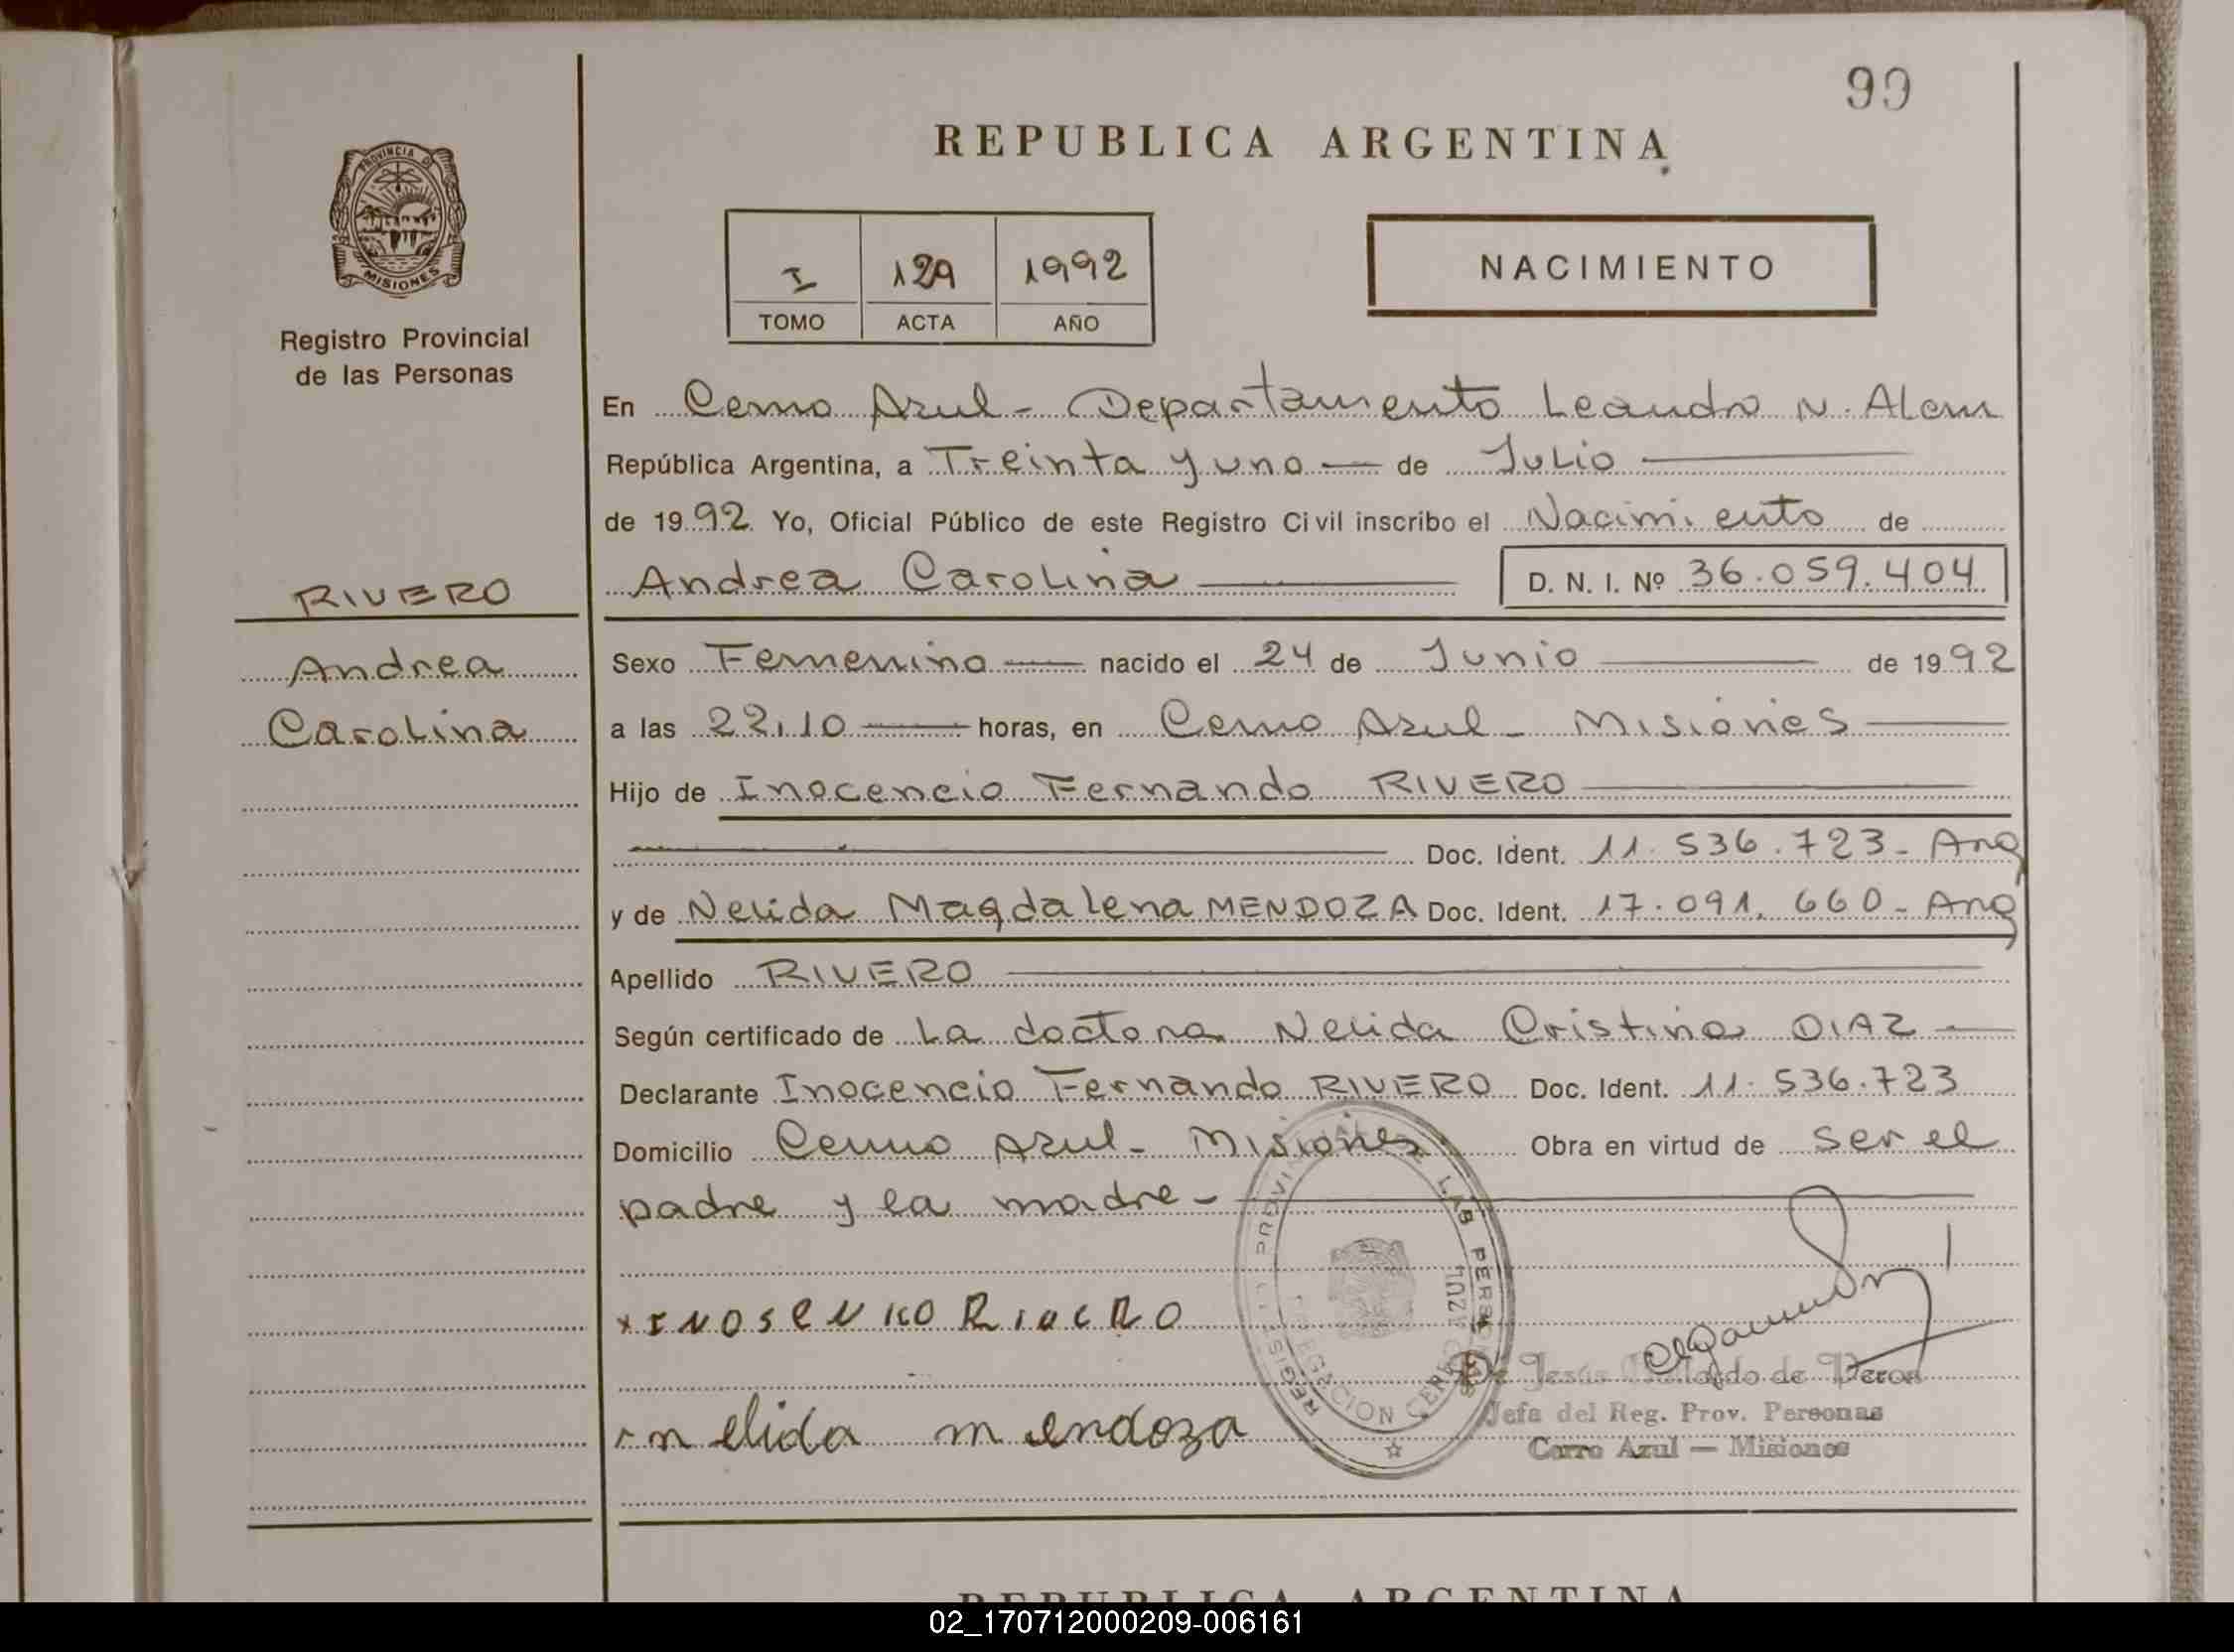 99
REPUBLICA ARGENTINA
PROVINCIA DE
MISIONES
Registro Provincial
de las Personas
I 129 1992
TOMO ACTA AÑO
NACIMIENTO
En Cerro Azul - Departamento Leandro N. Alem
República Argentina, a Treinta y uno — de Julio
de 1992 Yo, Oficial Público de este Registro Civil inscribo el Nacimiento de
Andrea Carolina
D. N. I. Nº 36.059.404
RIVERO
Andrea
Carolina
Sexo Femenino — nacido el 24 de Junio — de 1992
a las 22,10 — horas, en Cerro Azul - Misiones
Hijo de Inocencio Fernando RIVERO
Doc. Ident. 11.536.723 - Arg
y de Nelida Magdalena MENDOZA Doc. Ident. 17.091.660 - Arg
Apellido RIVERO
Según certificado de La doctora Nelida Cristina DIAZ —
Declarante Inocencio Fernando RIVERO Doc. Ident. 11.536.723
Domicilio Cerro Azul - Misiones Obra en virtud de ser el
padre y la madre -
REGISTRO PROVINCIAL DE LAS PERSONAS
DELEGACION CERRO AZUL
Jesús de Peron
Jefa del Reg. Prov. Personas
Cerro Azul — Misiones
nelida mendoza
REPUBLICA ARGENTINA
02_170712000209-006161